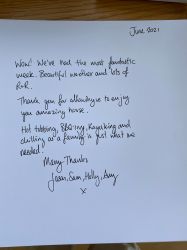 June 2021
Wow! We've had the most fantastic
week. Beautiful weather and lots of
R+R.
Thank you for allowing us to enjoy
you amazing house.
Hot tubbing, BBQ-ing, Kayaking and
chilling as a family is just what we
needed.
Many Thanks
Sam, Holly, Amy
x